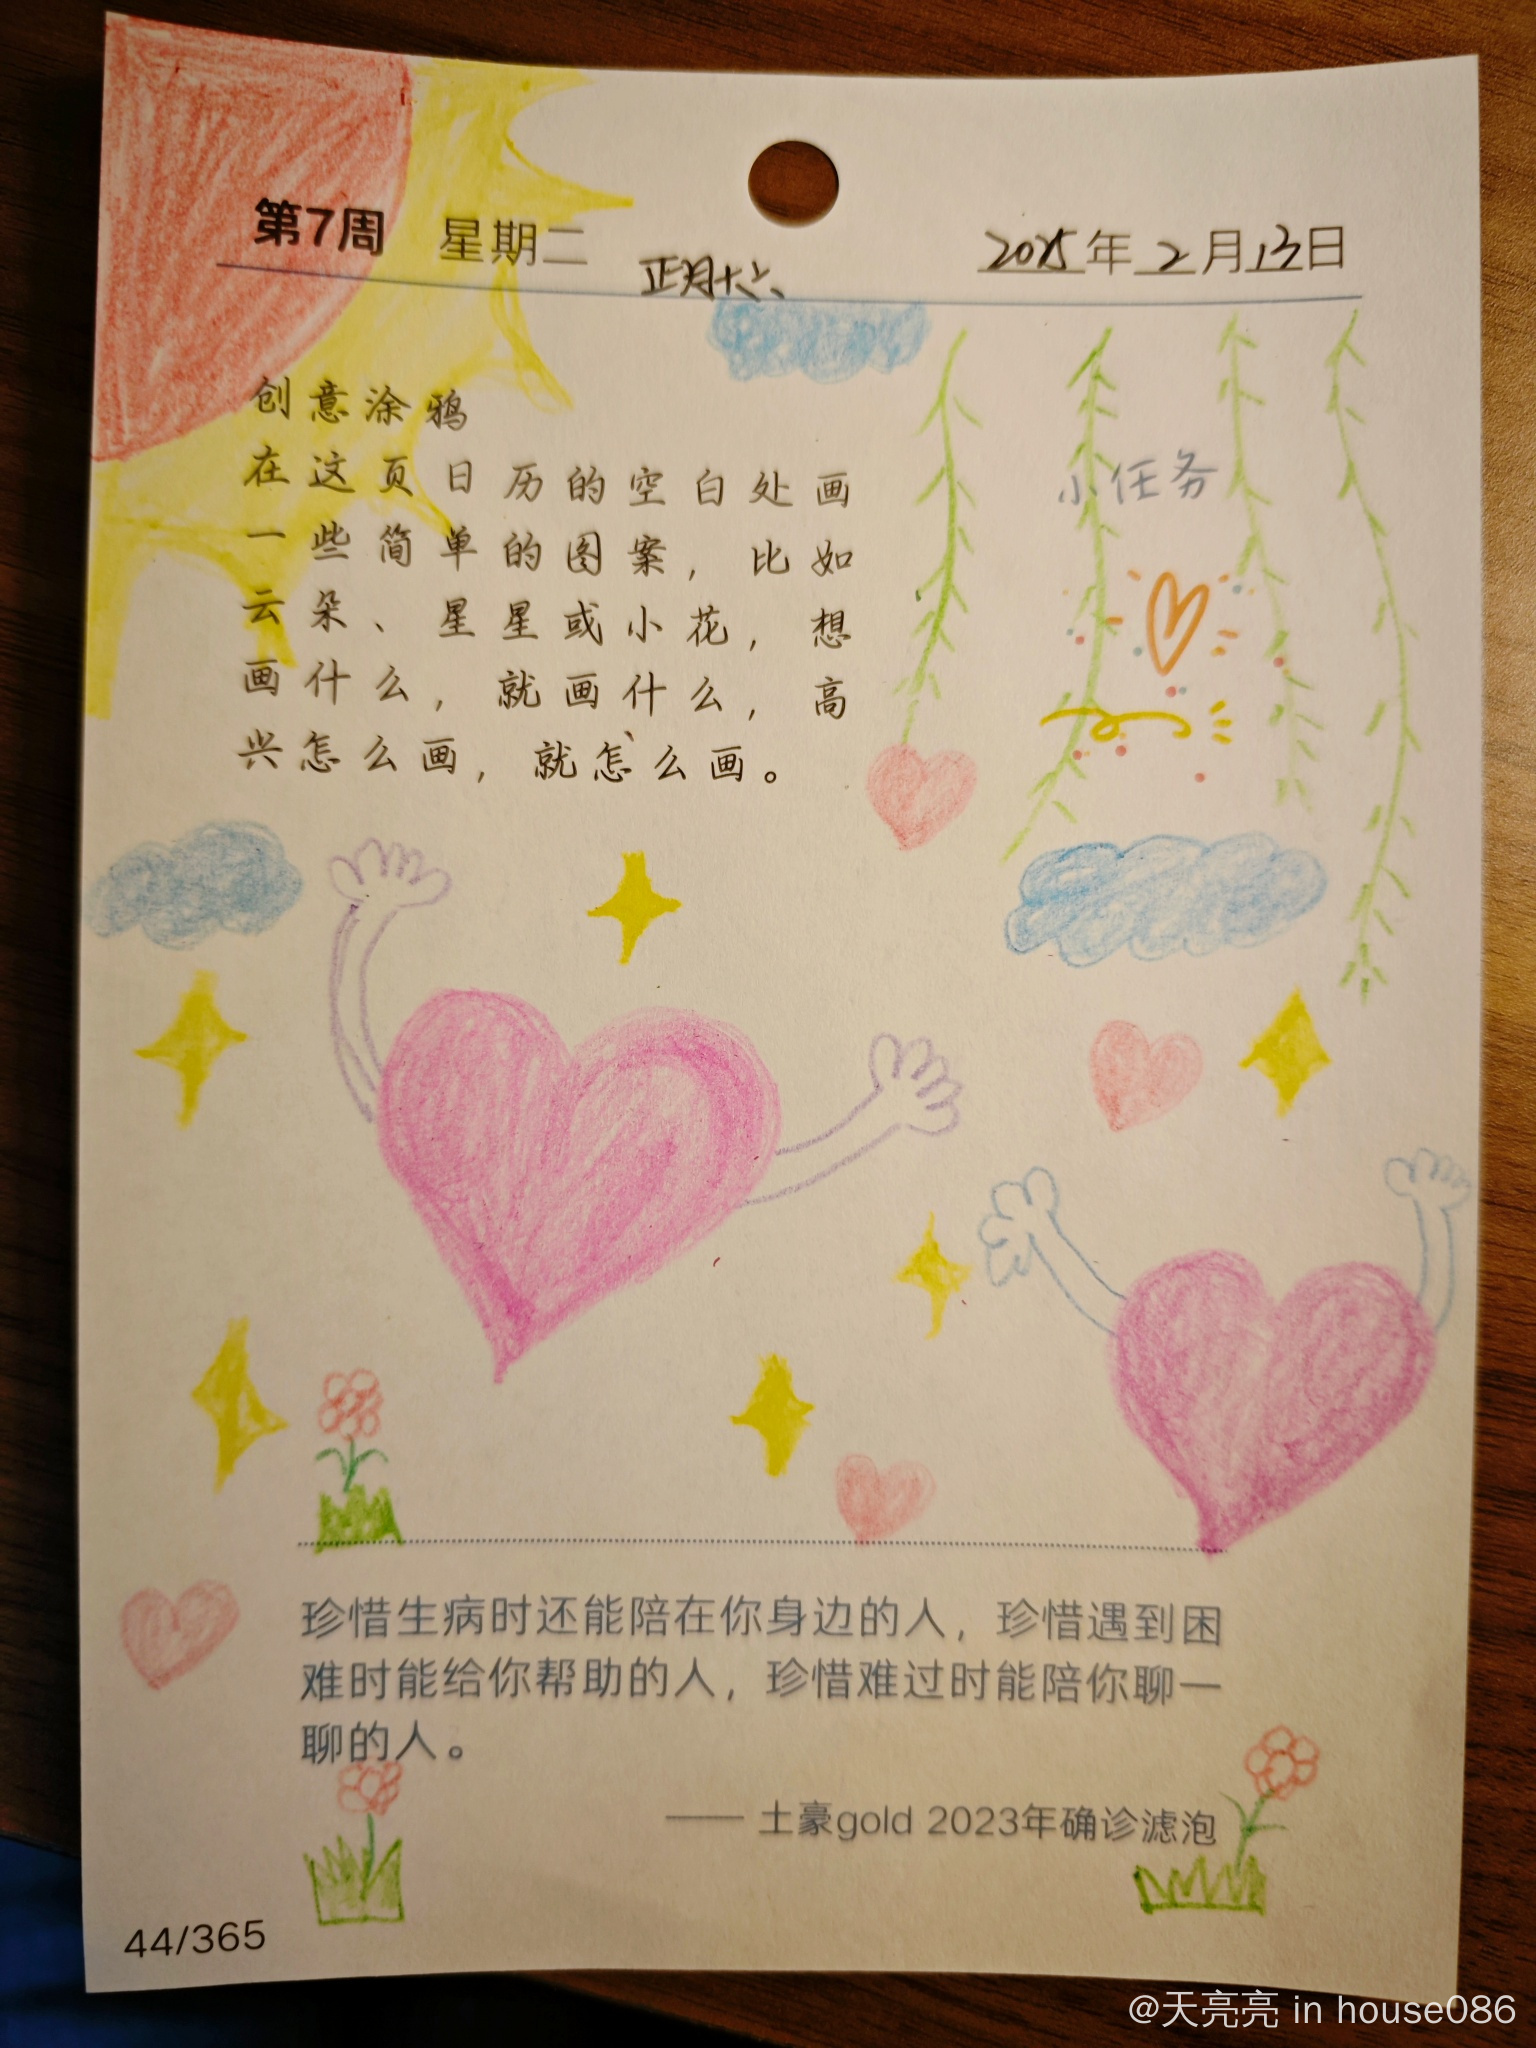 第7周 星期二 正月十六 2025年2月13日
创意涂鸦
在这页日历的空白处画
一些简单的图案，比如
云朵、星星或小花，想
画什么，就画什么，高
兴怎么画，就怎么画。
小任务
珍惜生病时还能陪在你身边的人，珍惜遇到困
难时能给你帮助的人，珍惜难过时能陪你聊一
聊的人。
—— 土豪gold 2023年确诊滤泡
44/365
@天亮亮 in house086